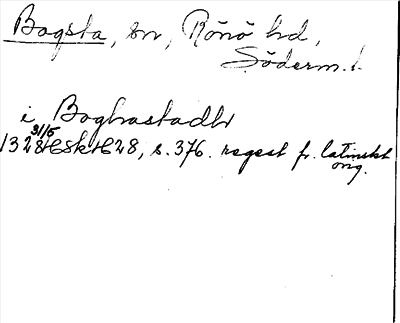 Bogsta, sn, Rönö hd,
Söderm. l.
i Boghastadhr
1328 31/5 HSH 28, s. 376. regest fr. latinskt
orig.